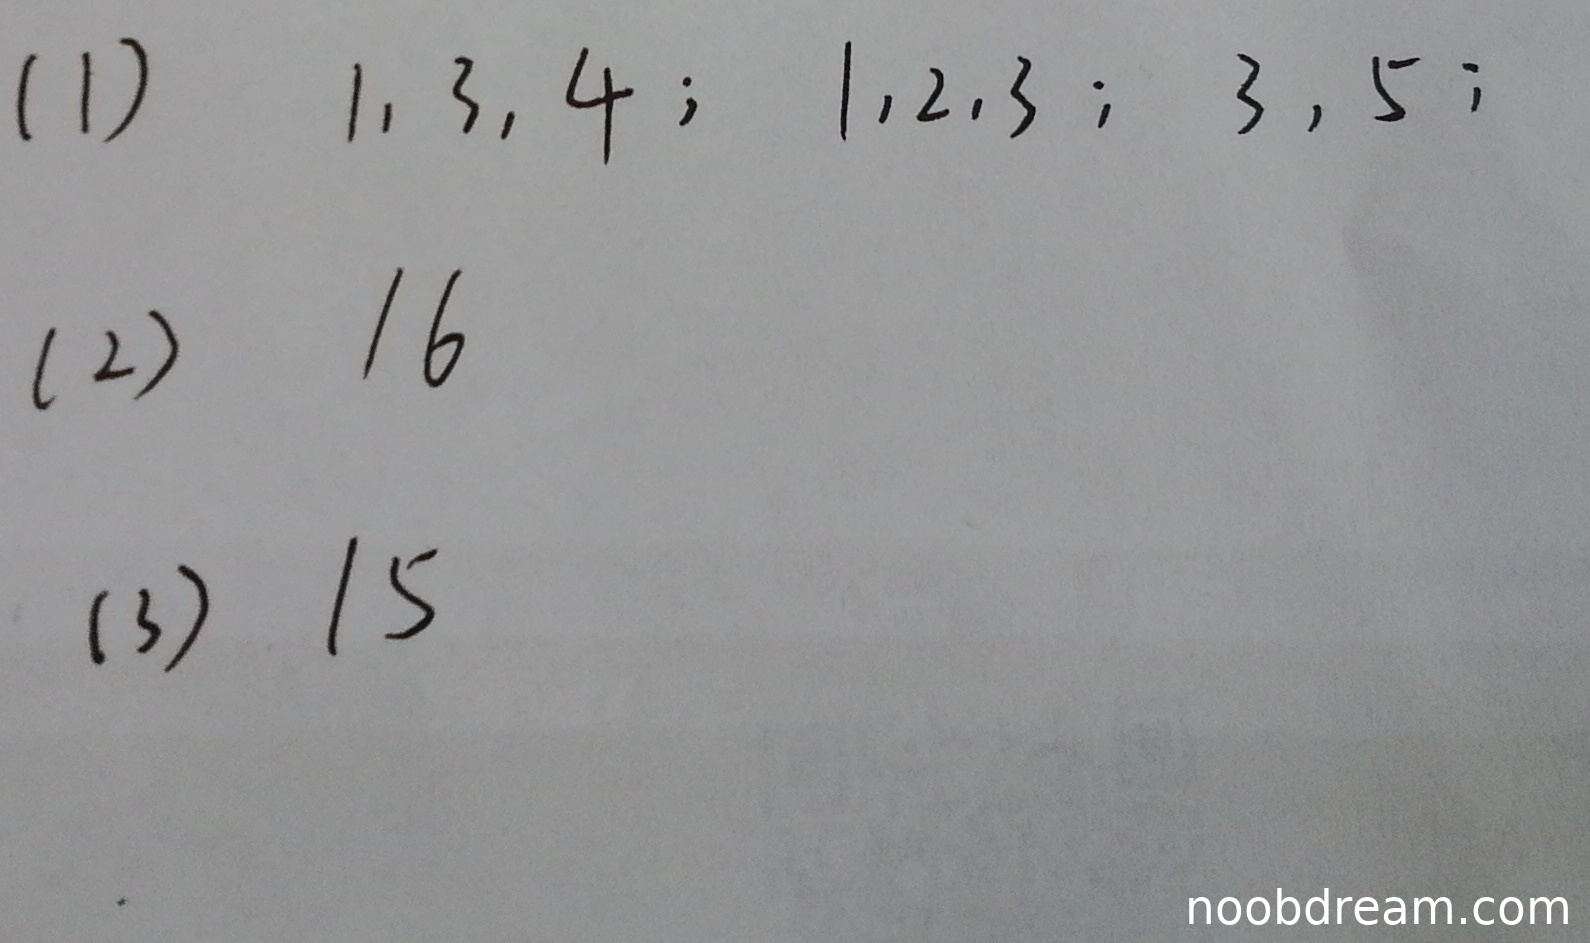 (1) 1, 3, 4; 1, 2, 3; 3, 5;
(2) 16
(3) 15
noobdream.com